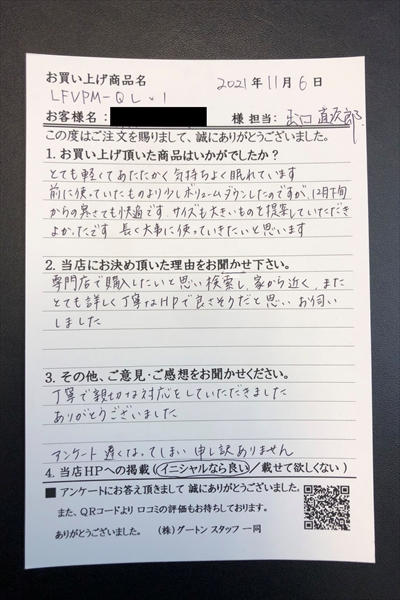 お買い上げ商品名 2021年11月6日
LFVPM-QL×1
お客様名: 様 担当: 出口直次郎
この度はご注文を賜りまして、誠にありがとうございました。
1. お買い上げ頂いた商品はいかがでしたか?
とても軽くてあたたかく気持ちよく眠れています
前に使っていたものより少しボリュームダウンしたのですが、12月下旬
からの寒さても快適です サイズも大きいものを提案していただき
よかったです 長く大事に使っていきたいと思います
2. 当店にお決め頂いた理由をお聞かせ下さい。
専門店で購入したいと思い検索し、家から近く、また
とても詳しく丁寧なHPで良さそうだと思い お伺い
しました
3. その他、ご意見・ご感想をお聞かせください。
丁寧で親切な対応をしていただきました
ありがとうございました
アンケート遅くなってしまい申し訳ありません
4. 当店HPへの掲載(イニシャルなら良い/載せて欲しくない)
■アンケートにお答え頂きまして 誠にありがとうございました。
また、QRコードより 口コミの評価もお待ちしております。
ありがとうございました。 (株)ダートン スタッフ一同